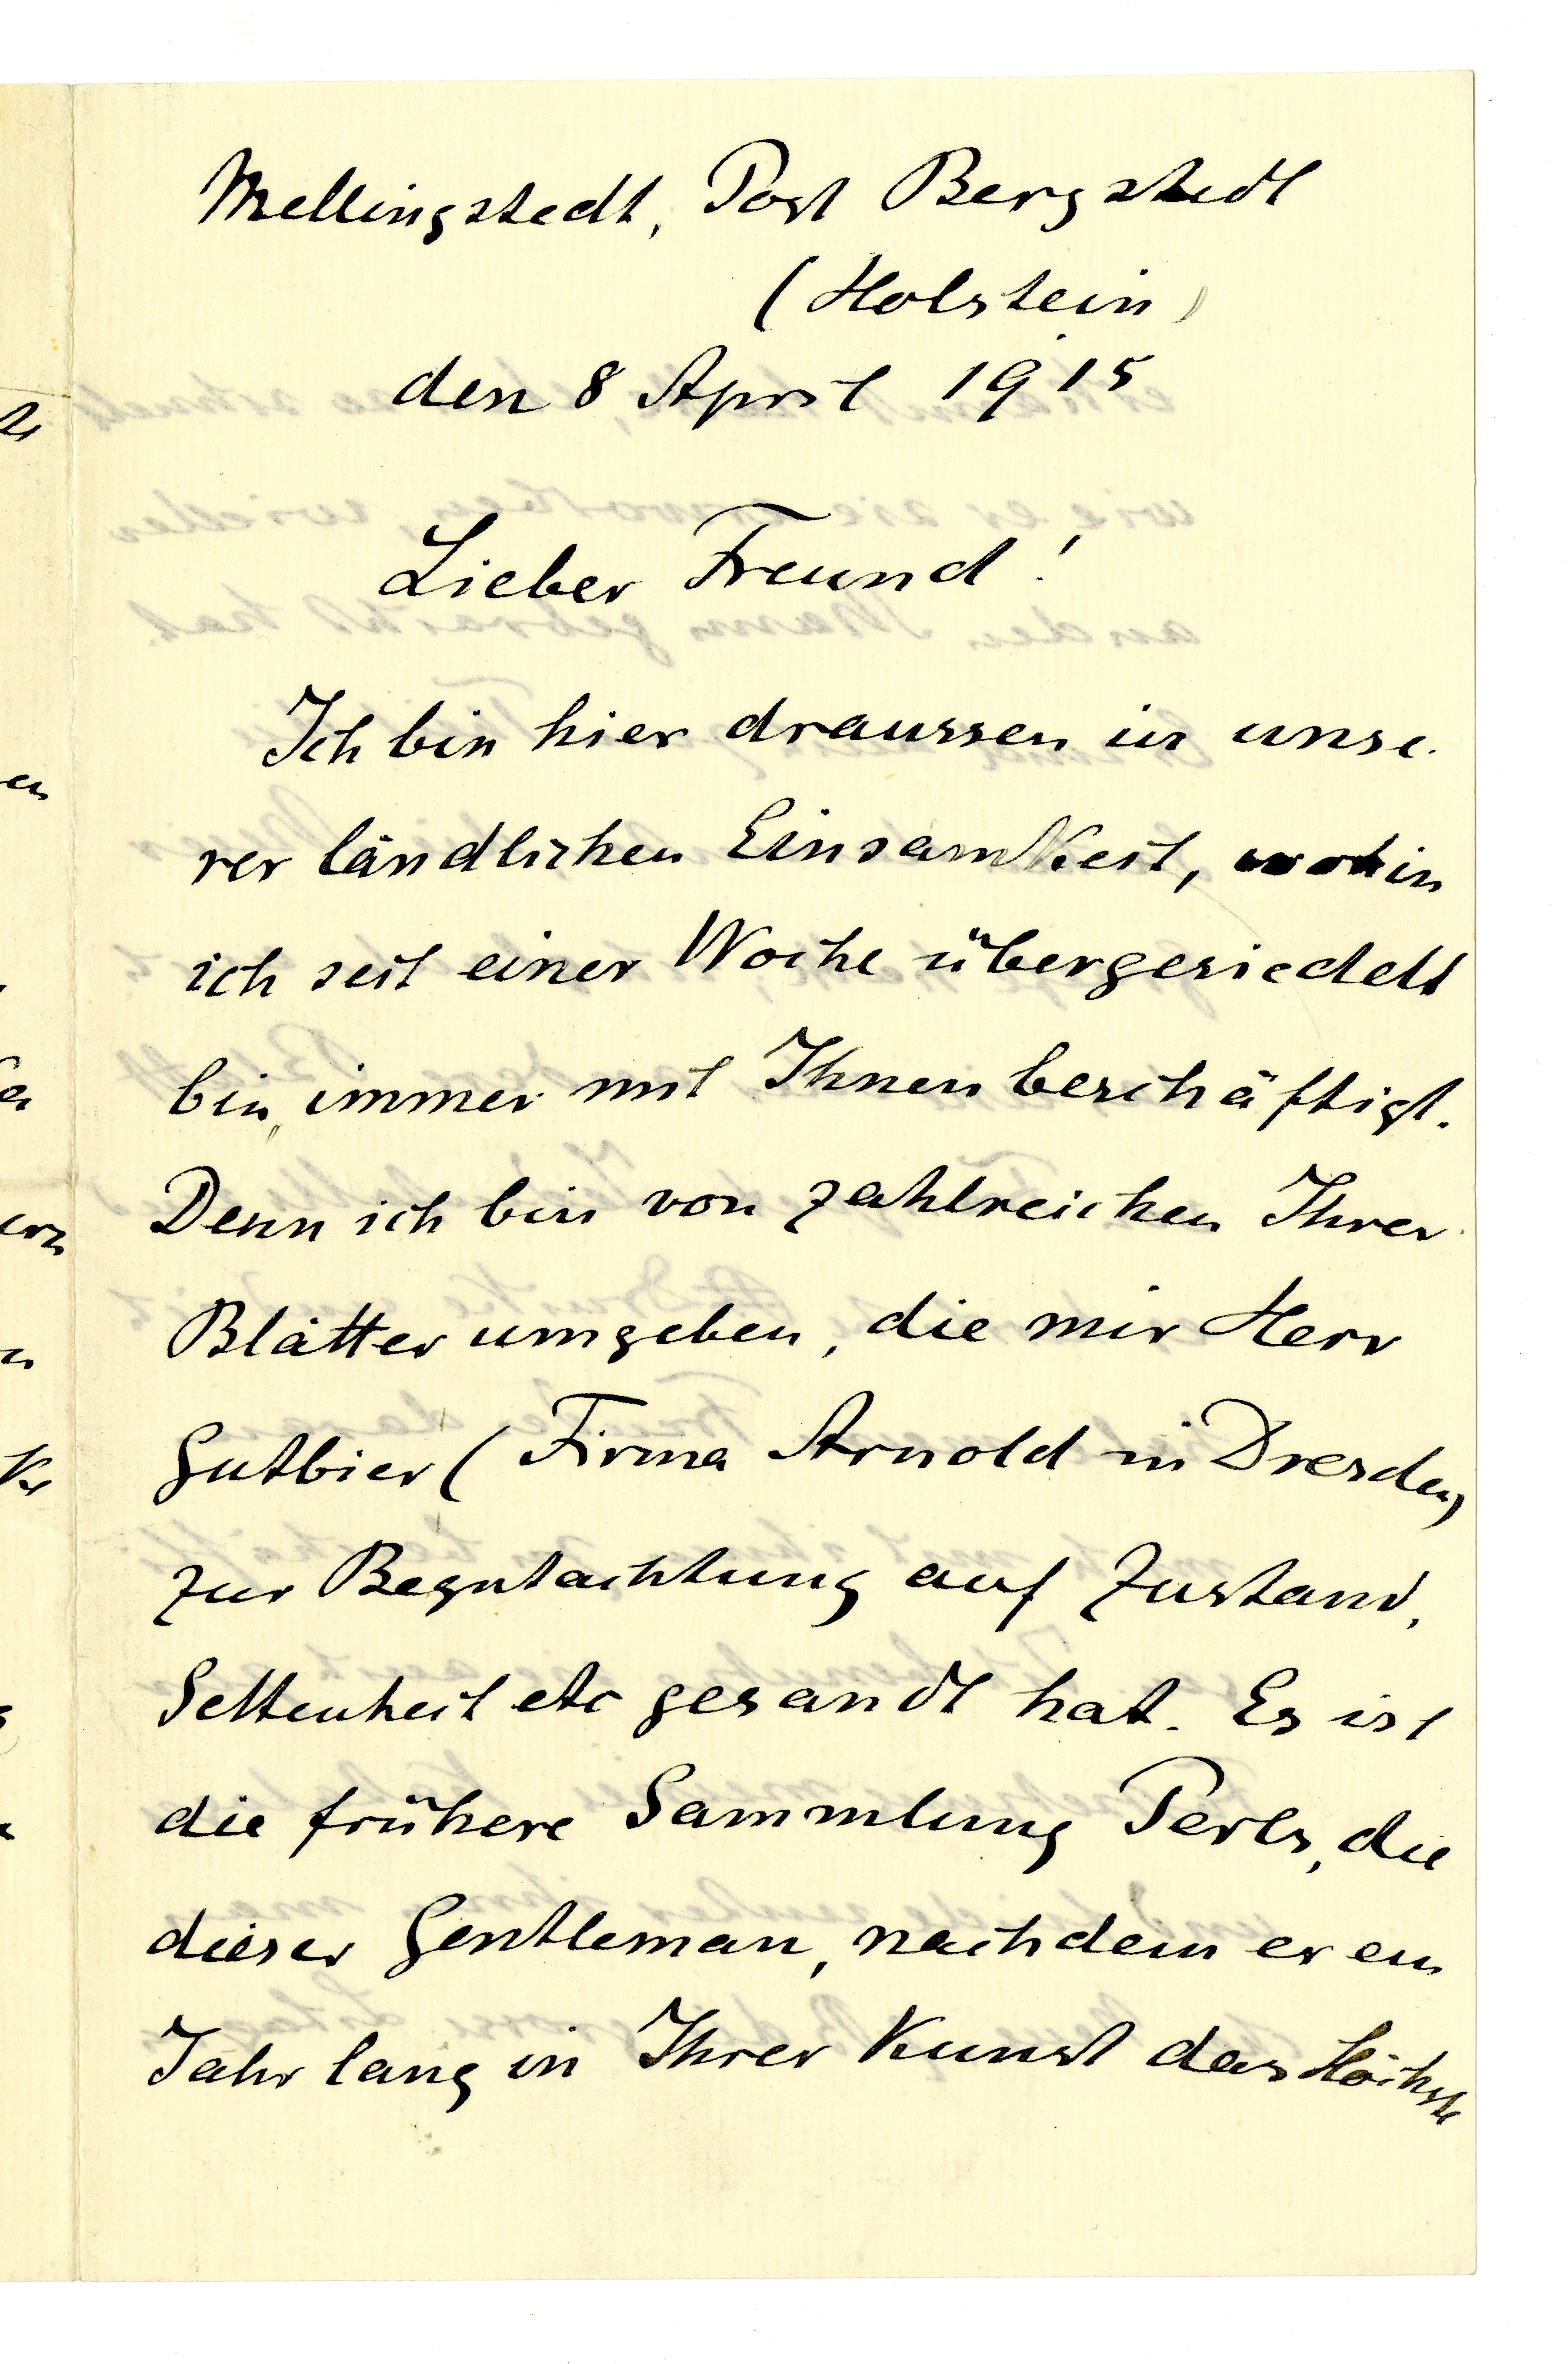 Mellingstedt, Post Bergstedt
(Holstein)
den 8 April 1915
Lieber Freund!
Ich bin hier draussen in unse-
rer ländlichen Einsamkeit, wohin
ich seit einer Woche übergesiedelt
bin, immer mit Ihnen beschäftigt.
Denn ich bin von zahlreichen Ihrer
Blätter umgeben, die mir Herr
Gutbier (Firma Arnold in Dresden)
zur Begutachtung auf Zustand,
Seltenheit etc gesandt hat. Es ist
die frühere Sammlung Perls, die
dieser Gentleman, nachdem er ein
Jahr lang in Ihrer Kunst das Höchste